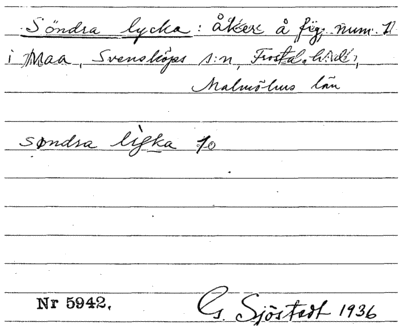 Söndra lycka: åker å fig. num. 11
i Maa, Svensköps s:n, Frosta h:d,
Malmöhus län
søndra lyka 10
Nr 5942.
G. Sjöstedt 1936